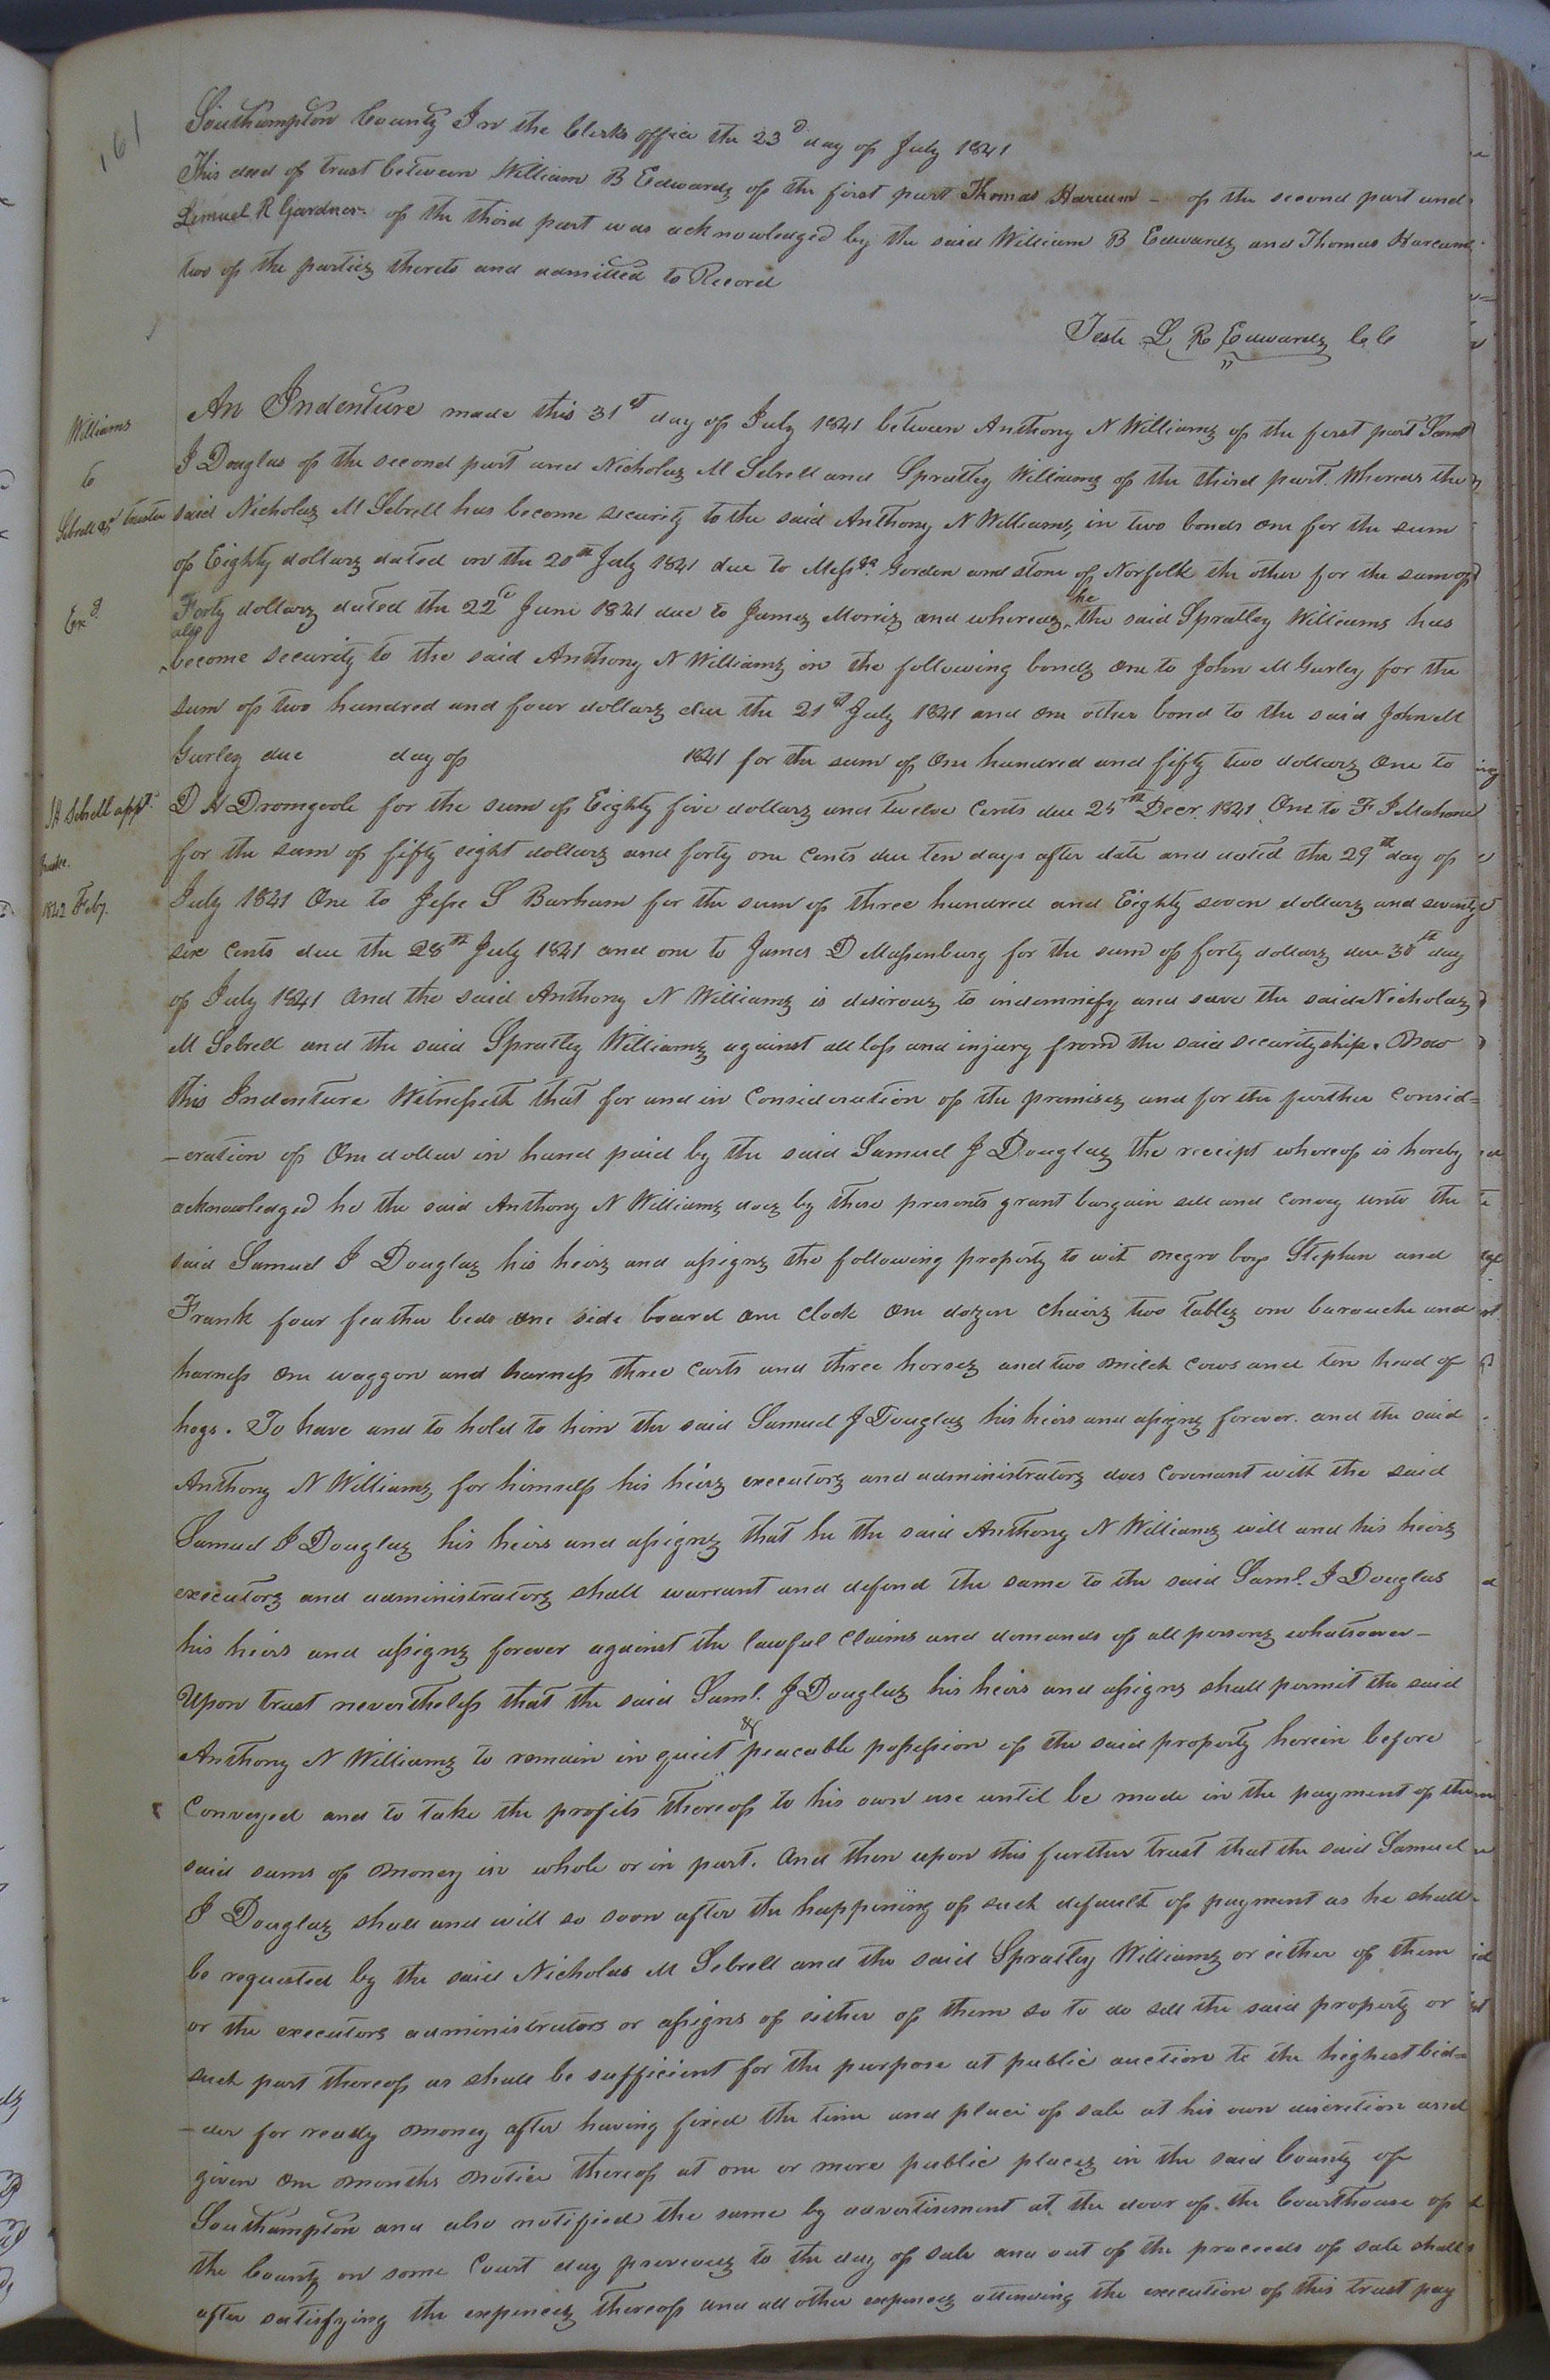 161
Southampton County In the Clerks office the 23d day of July 1841
This deed of trust between William B Edwards of the first part Thomas Harcum - of the second part and
Lemuel R Gardner of the third part was acknowledged by the said William B Edwards and Thomas Harcum
two of the parties thereto and admitted to Record
Teste L R Edwards C C
Williams
to
Sebrell &c trustee
Exd.
An Indenture made this 31st day of July 1841 between Anthony N Williams of the first part Saml
J Douglas of the second part and Nicholas M Sebrell and Spratley Williams of the third part. Whereas the
said Nicholas M Sebrell has become security to the said Anthony N Williams, in two bonds one for the sum
of Eighty dollars dated on the 20th July 1841 due to Messrs. Gordon and Stone of Norfolk the other for the sum of
Forty dollars dated the 22d June 1821 due to James Morris and whereas he the said Spratley Williams has
also become security to the said Anthony N Williams in the following bonds one to John M Gurley for the
sum of two hundred and four dollars due the 21st July 1841 and one other bond to the said John M
Gurley due day of 1841 for the sum of One hundred and fifty two dollars One to
J A Sebrell appt.
trustee.
1842 Feby.
D H Dromgoole for the sum of Eighty five dollars and twelve Cents due 25th Decr. 1841 One to F J Mahone
for the sum of fifty eight dollars and forty one Cents due ten days after date and dated the 29th day of
July 1841 One to Jesse S Barham for the sum of three hundred and Eighty seven dollars and seventy
six Cents due the 28th July 1841 and one to James D Massenburg for the sum of forty dollars due 30th day
of July 1841 And the said Anthony N Williams is desirous to indemnify and save the said Nicholas
M Sebrell and the said Spratley Williams against all loss and injury from the said securityship. Now
this Indenture Witnesseth that for and in Consideration of the premises and for the further Consid=
-eration of One dollar in hand paid by the said Samuel J Douglas the receipt whereof is hereby
acknowledged he the said Anthony N Williams does by these presents grant bargain sell and Convey unto the
said Samuel J Douglas his heirs and assigns the following property to wit negro boys Stephen and
Frank four feather beds one side board one clock one dozen Chairs two tables one barouche and
harness one waggon and harness three Carts and three horses and two milch Cows and ten head of
hogs. To have and to hold to him the said Samuel J Douglas his heirs and assigns forever. and the said
Anthony N Williams for himself his heirs executors and administrators does Covenant with the said
Samuel J Douglas his heirs and assigns that he the said Anthony N Williams will and his heirs
executors and administrators shall warrant and defend the same to the said Saml. J Douglas
his heirs and assigns forever against the lawful Claims and demands of all persons whatsoever -
Upon trust nevertheless that the said Saml. J Douglas his heirs and assigns shall permit the said
Anthony N Williams to remain in quiet & peaceable possession of the said property herein before
Conveyed and to take the profits thereof to his own use until be made in the payment of the
said sums of money in whole or in part. And then upon this further trust that the said Samuel
J Douglas shall and will so soon after the happening of such default of payment as he shall
be requested by the said Nicholas M Sebrell and the said Spratley Williams or either of them
or the executors administrators or assigns of either of them so to do sell the said property or
such part thereof as shall be sufficient for the purpose at public auction to the highest bid=
-der for ready money after having fixed the time and place of sale at his own discretion and
given one months notice thereof at one or more public places in the said County of
Southampton and also notified the same by advertisement at the door of the Courthouse of
the County on some Court day previous to the day of sale and out of the proceeds of sale shall
after satisfying the expences thereof and all other expences attending the execution of this trust pay